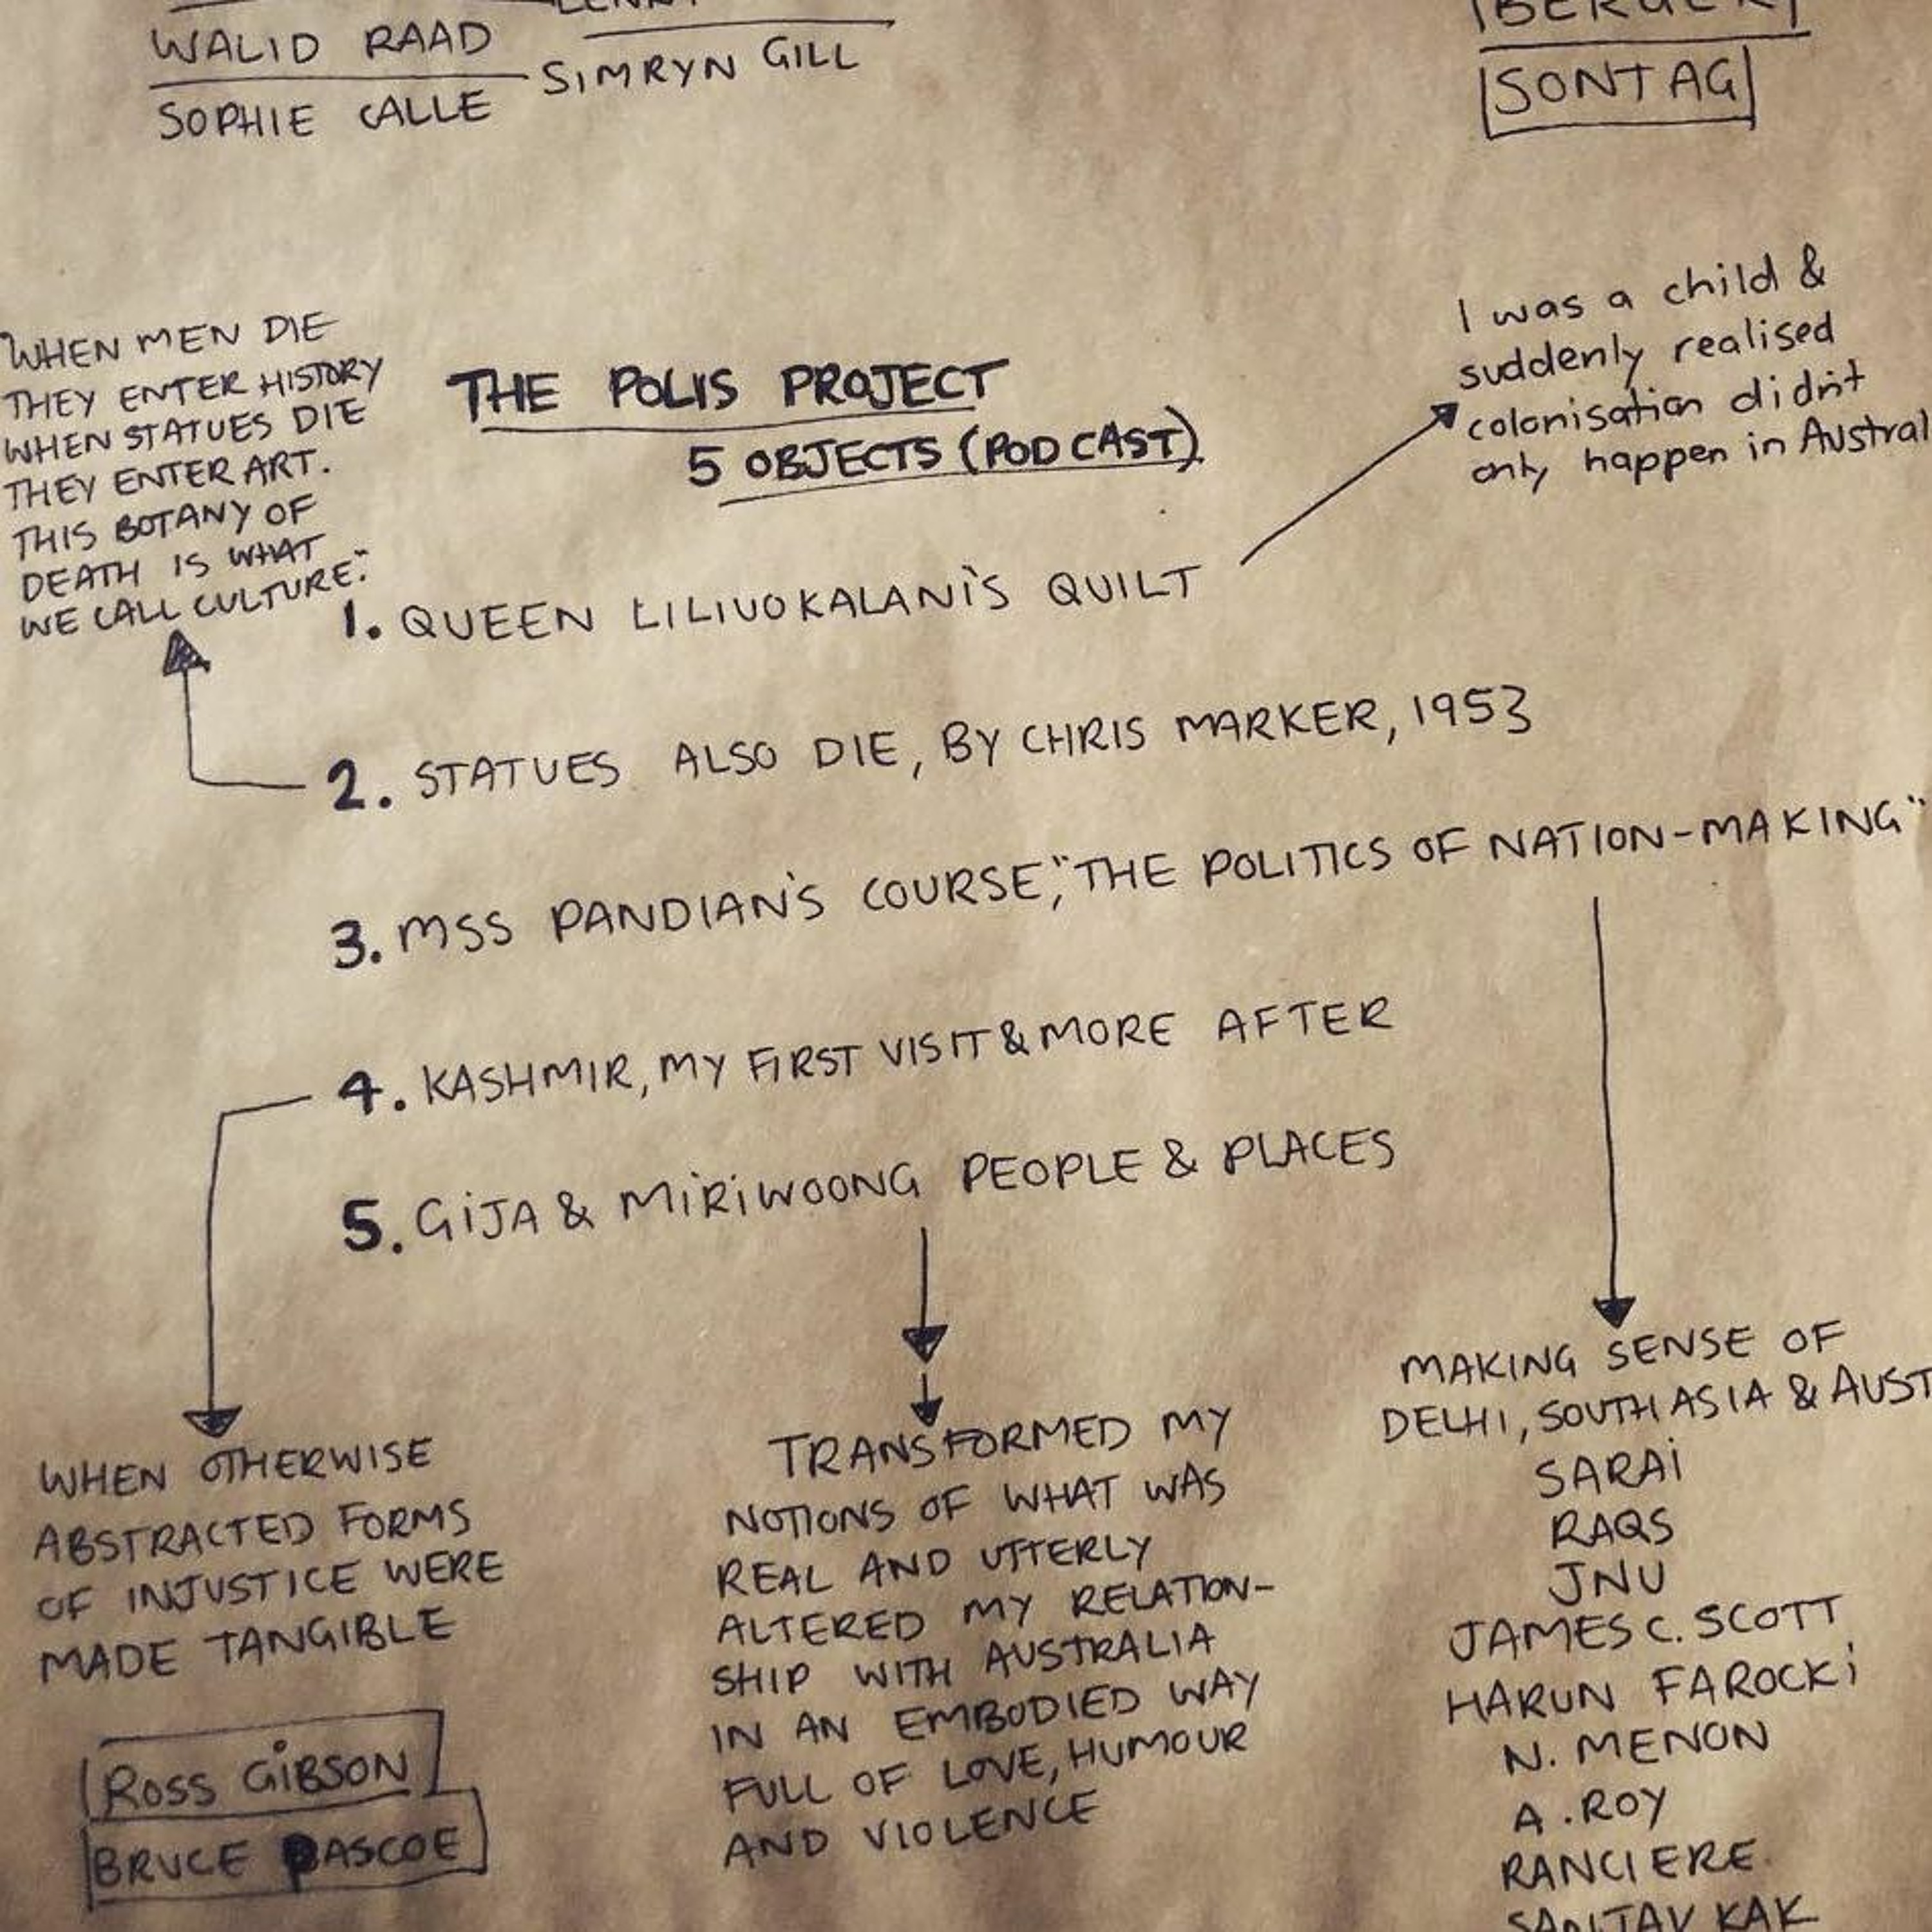 WALID RAAD
SOPHIE CALLE
SIMRYN GILL
SONTAG
"WHEN MEN DIE
THEY ENTER HISTORY
WHEN STATUES DIE
THEY ENTER ART.
THIS BOTANY OF
DEATH IS WHAT
WE CALL CULTURE."
THE POLIS PROJECT
5 OBJECTS (PODCAST)
I was a child &
suddenly realised
colonisation didn't
only happen in Austral
1. QUEEN LILIUOKALANI'S QUILT
2. STATUES ALSO DIE, BY CHRIS MARKER, 1953
3. MSS PANDIAN'S COURSE, "THE POLITICS OF NATION-MAKING"
4. KASHMIR, MY FIRST VISIT & MORE AFTER
5. GIJA & MIRIWOONG PEOPLE & PLACES
WHEN OTHERWISE
ABSTRACTED FORMS
OF INJUSTICE WERE
MADE TANGIBLE
ROSS GIBSON
BRUCE PASCOE
TRANSFORMED MY
NOTIONS OF WHAT WAS
REAL AND UTTERLY
ALTERED MY RELATION-
SHIP WITH AUSTRALIA
IN AN EMBODIED WAY
FULL OF LOVE, HUMOUR
AND VIOLENCE
MAKING SENSE OF
DELHI, SOUTH ASIA & AUST
SARAI
RAQS
JNU
JAMES C. SCOTT
HARUN FAROCKI
N. MENON
A. ROY
RANCIERE
SANJAY KAK